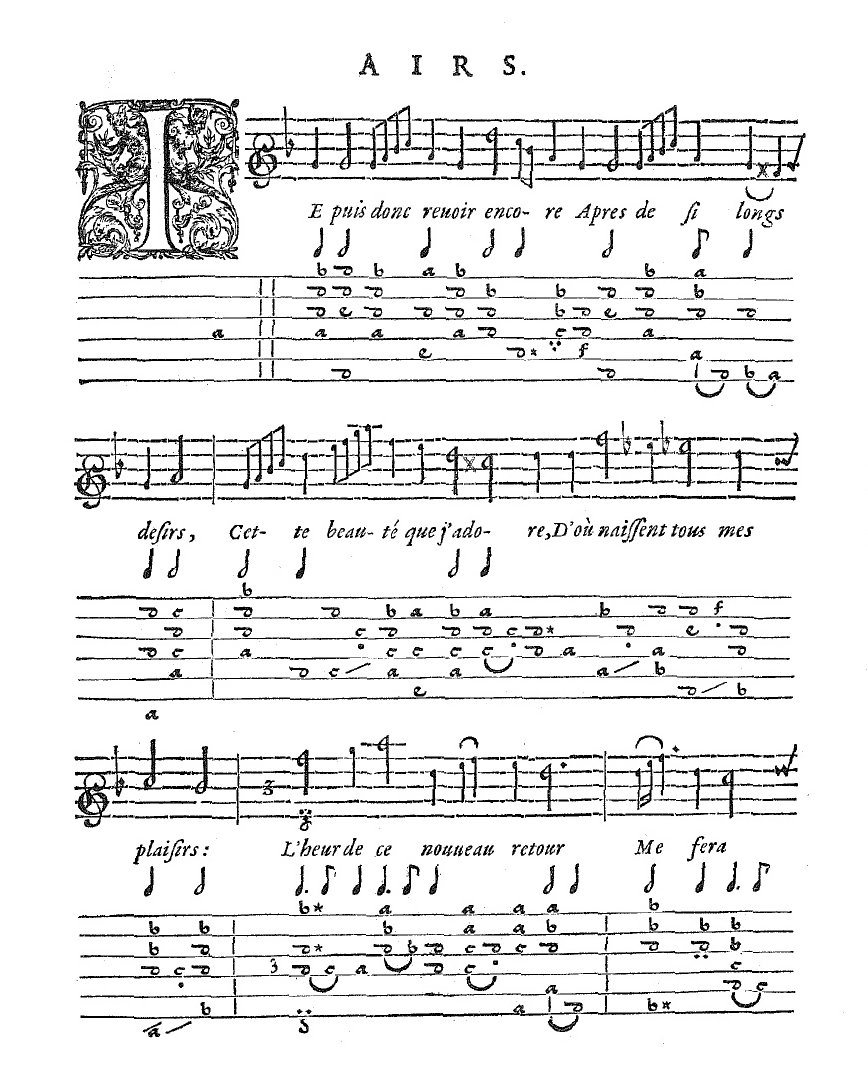 AIRS.
IE puis donc reuoir enco- re Apres de si longs
desirs, Cet- te beau- té que j'ado- re, D'où naissent tous mes
plaisirs: L'heur de ce nouueau retour Me fera